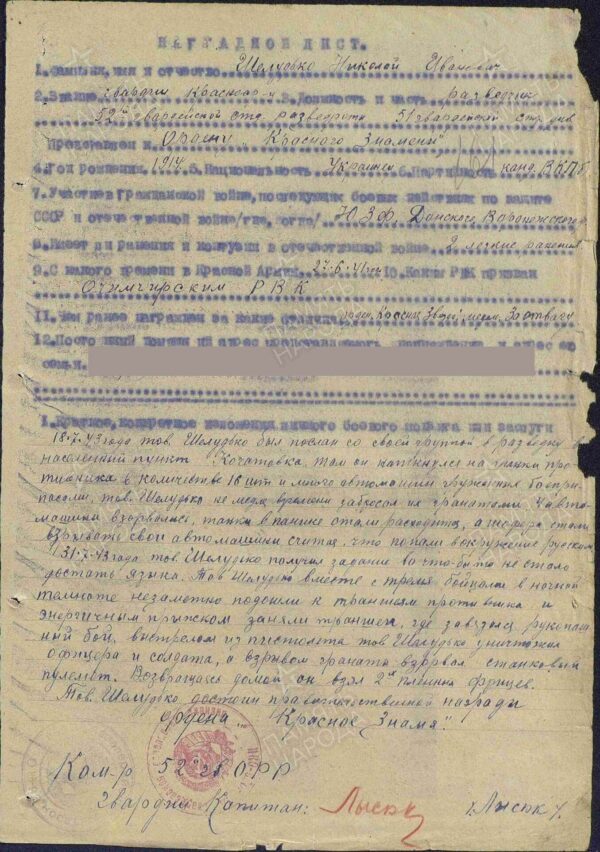 НАГРАДНОЙ ЛИСТ.
1. Фамилия, имя и отчество Шелудько Николай Иванович
2. Звание гвардии Красноар-ц 3. Должность и часть разведчик
52й гвардейской отд. разведроты 51 гвардейской стр. див.
Представлен к Ордену "Красного Знамени"
4. Год рождения 1914 5. Национальность Украинец 6. Партийность канд. ВКПб
7. Участие в гражданской войне, последующих боевых действиях по защите
СССР и отечественной войне /где, когда/ ЮЗФ, Донского, Воронежского
8. Имеет ли ранения и контузии в отечественной войне 2 легкие ранения
9. С какого времени в Красной Армии 27.6.41 10. Каким РВК призван
Очимчирским РВК
11. Чем ранее награжден за какие отличия орден "Красн. Звезда", медаль "За отвагу"
12. Постоянный домашний адрес представляемого к награждению и адрес его
семьи.
I. Краткое, конкретное изложение личного боевого подвига или заслуги
18.7.43 года тов. Шелудько был послан со своей группой в разведку в
населенный пункт Кочатовка, там он наткнулся на танки про-
тивника в количестве 16 шт и много автомашин груженных боепри-
пасами, тов. Шелудько не медля времени забросал их гранатами 4 авто-
машины взорвались, танки в панике стали расходится, а шофера стали
взрывать свои автомашины считая, что попали в окружение русским
31.7.43 года тов. Шелудько получил задание во что-бы то не стало
достать языка. Тов. Шелудько вместе с тремя бойцами в ночной
темноте незаметно подошли к траншеям противника и
энергичным прыжком заняли траншею, где завязался рукопаш-
ный бой, выстрелом из пистолета тов. Шелудько уничтожил
офицера и солдата, а взрывом гранаты взорвал станковый
пулемет. Возвращаясь домой он взял 2х пленных фрицев.
Тов. Шелудько достоин правительственной награды
ордена "Красное Знамя".
Ком-р 52 гв ОРР
Гвардии Капитан: Лысюк /Лысюк/